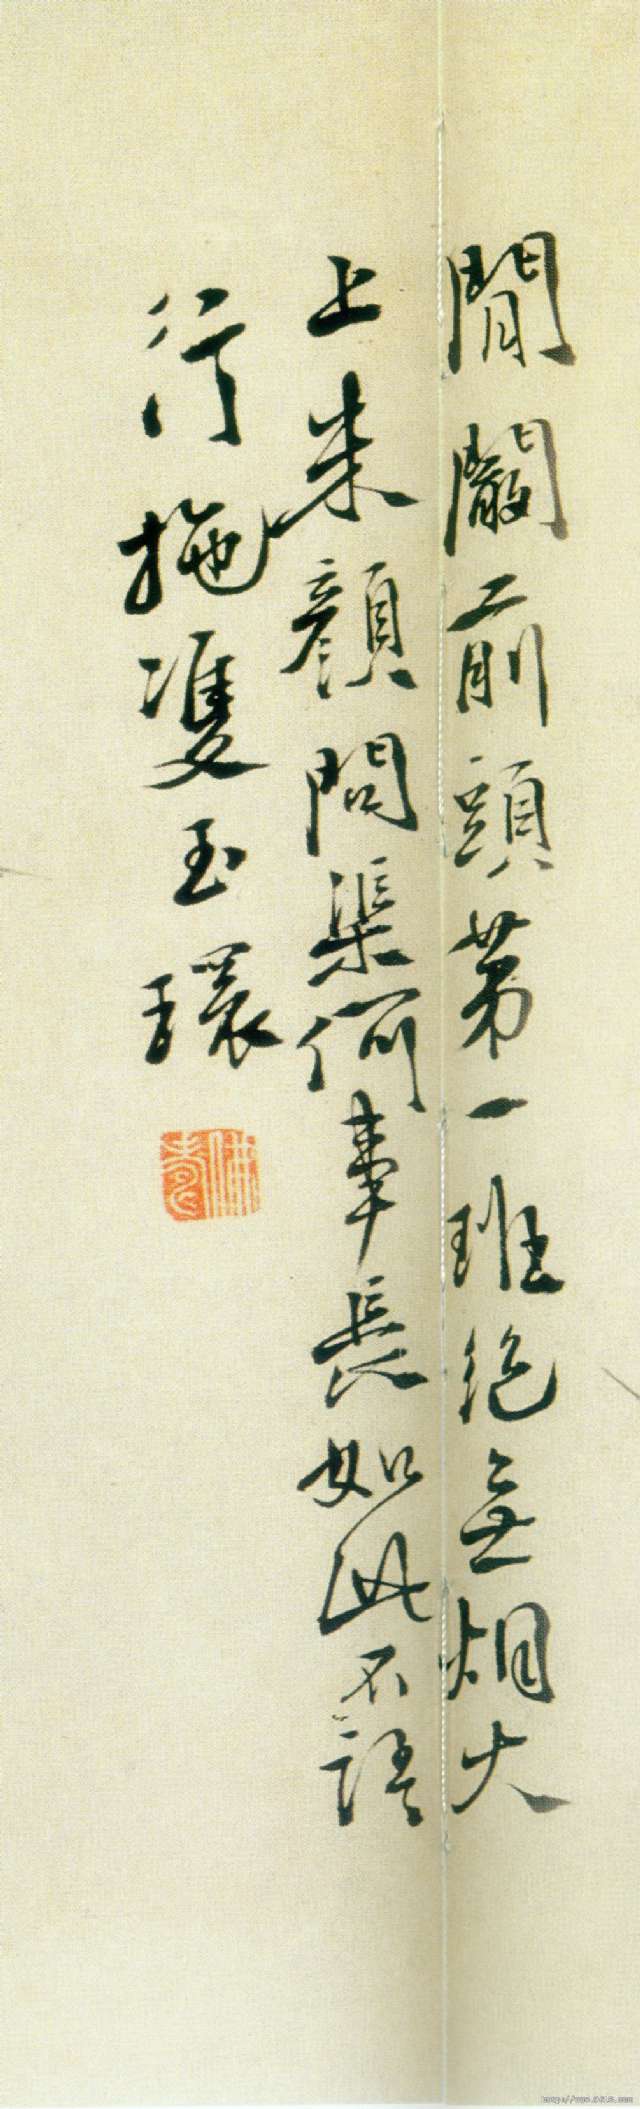 閒關前頭第一班絕無烟火
上朱顏問渠何事長如此不語
行拖雙玉環